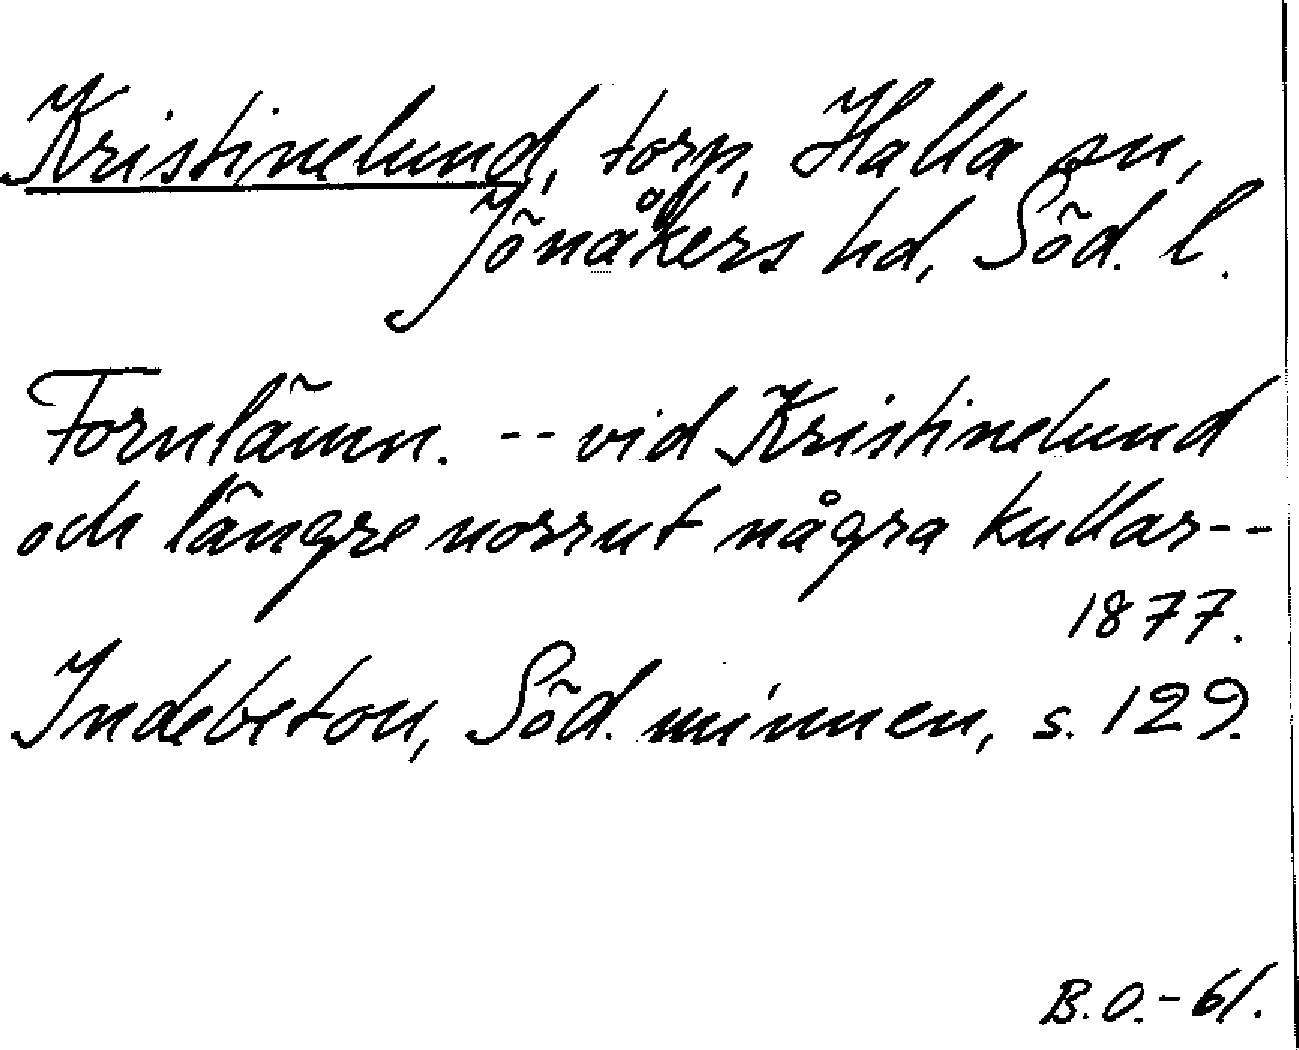 Kristinelund, torp, Halla sn,
Jönåkers hd, Söd. l.
Fornlämn. -- vid Kristinelund
och längre norrut några kullar--
1877.
Indebetou, Söd. minnen, s. 129.
B.O.-61.